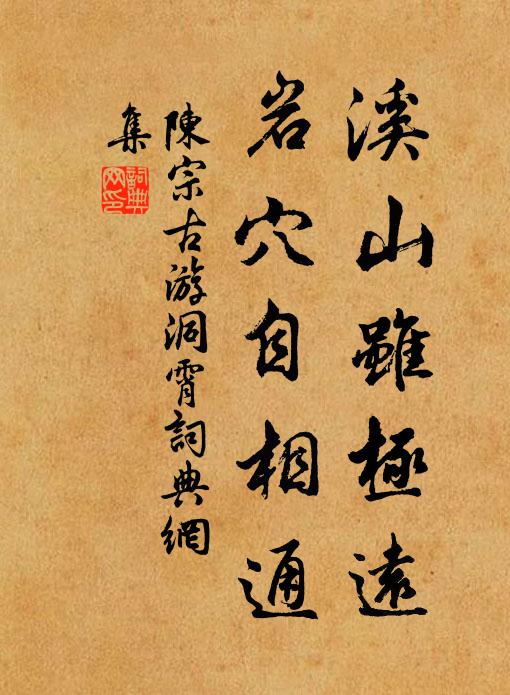 溪山雖極遠
岩穴自相通
陳宗古游洞霄詞典網
集
詞典
网印